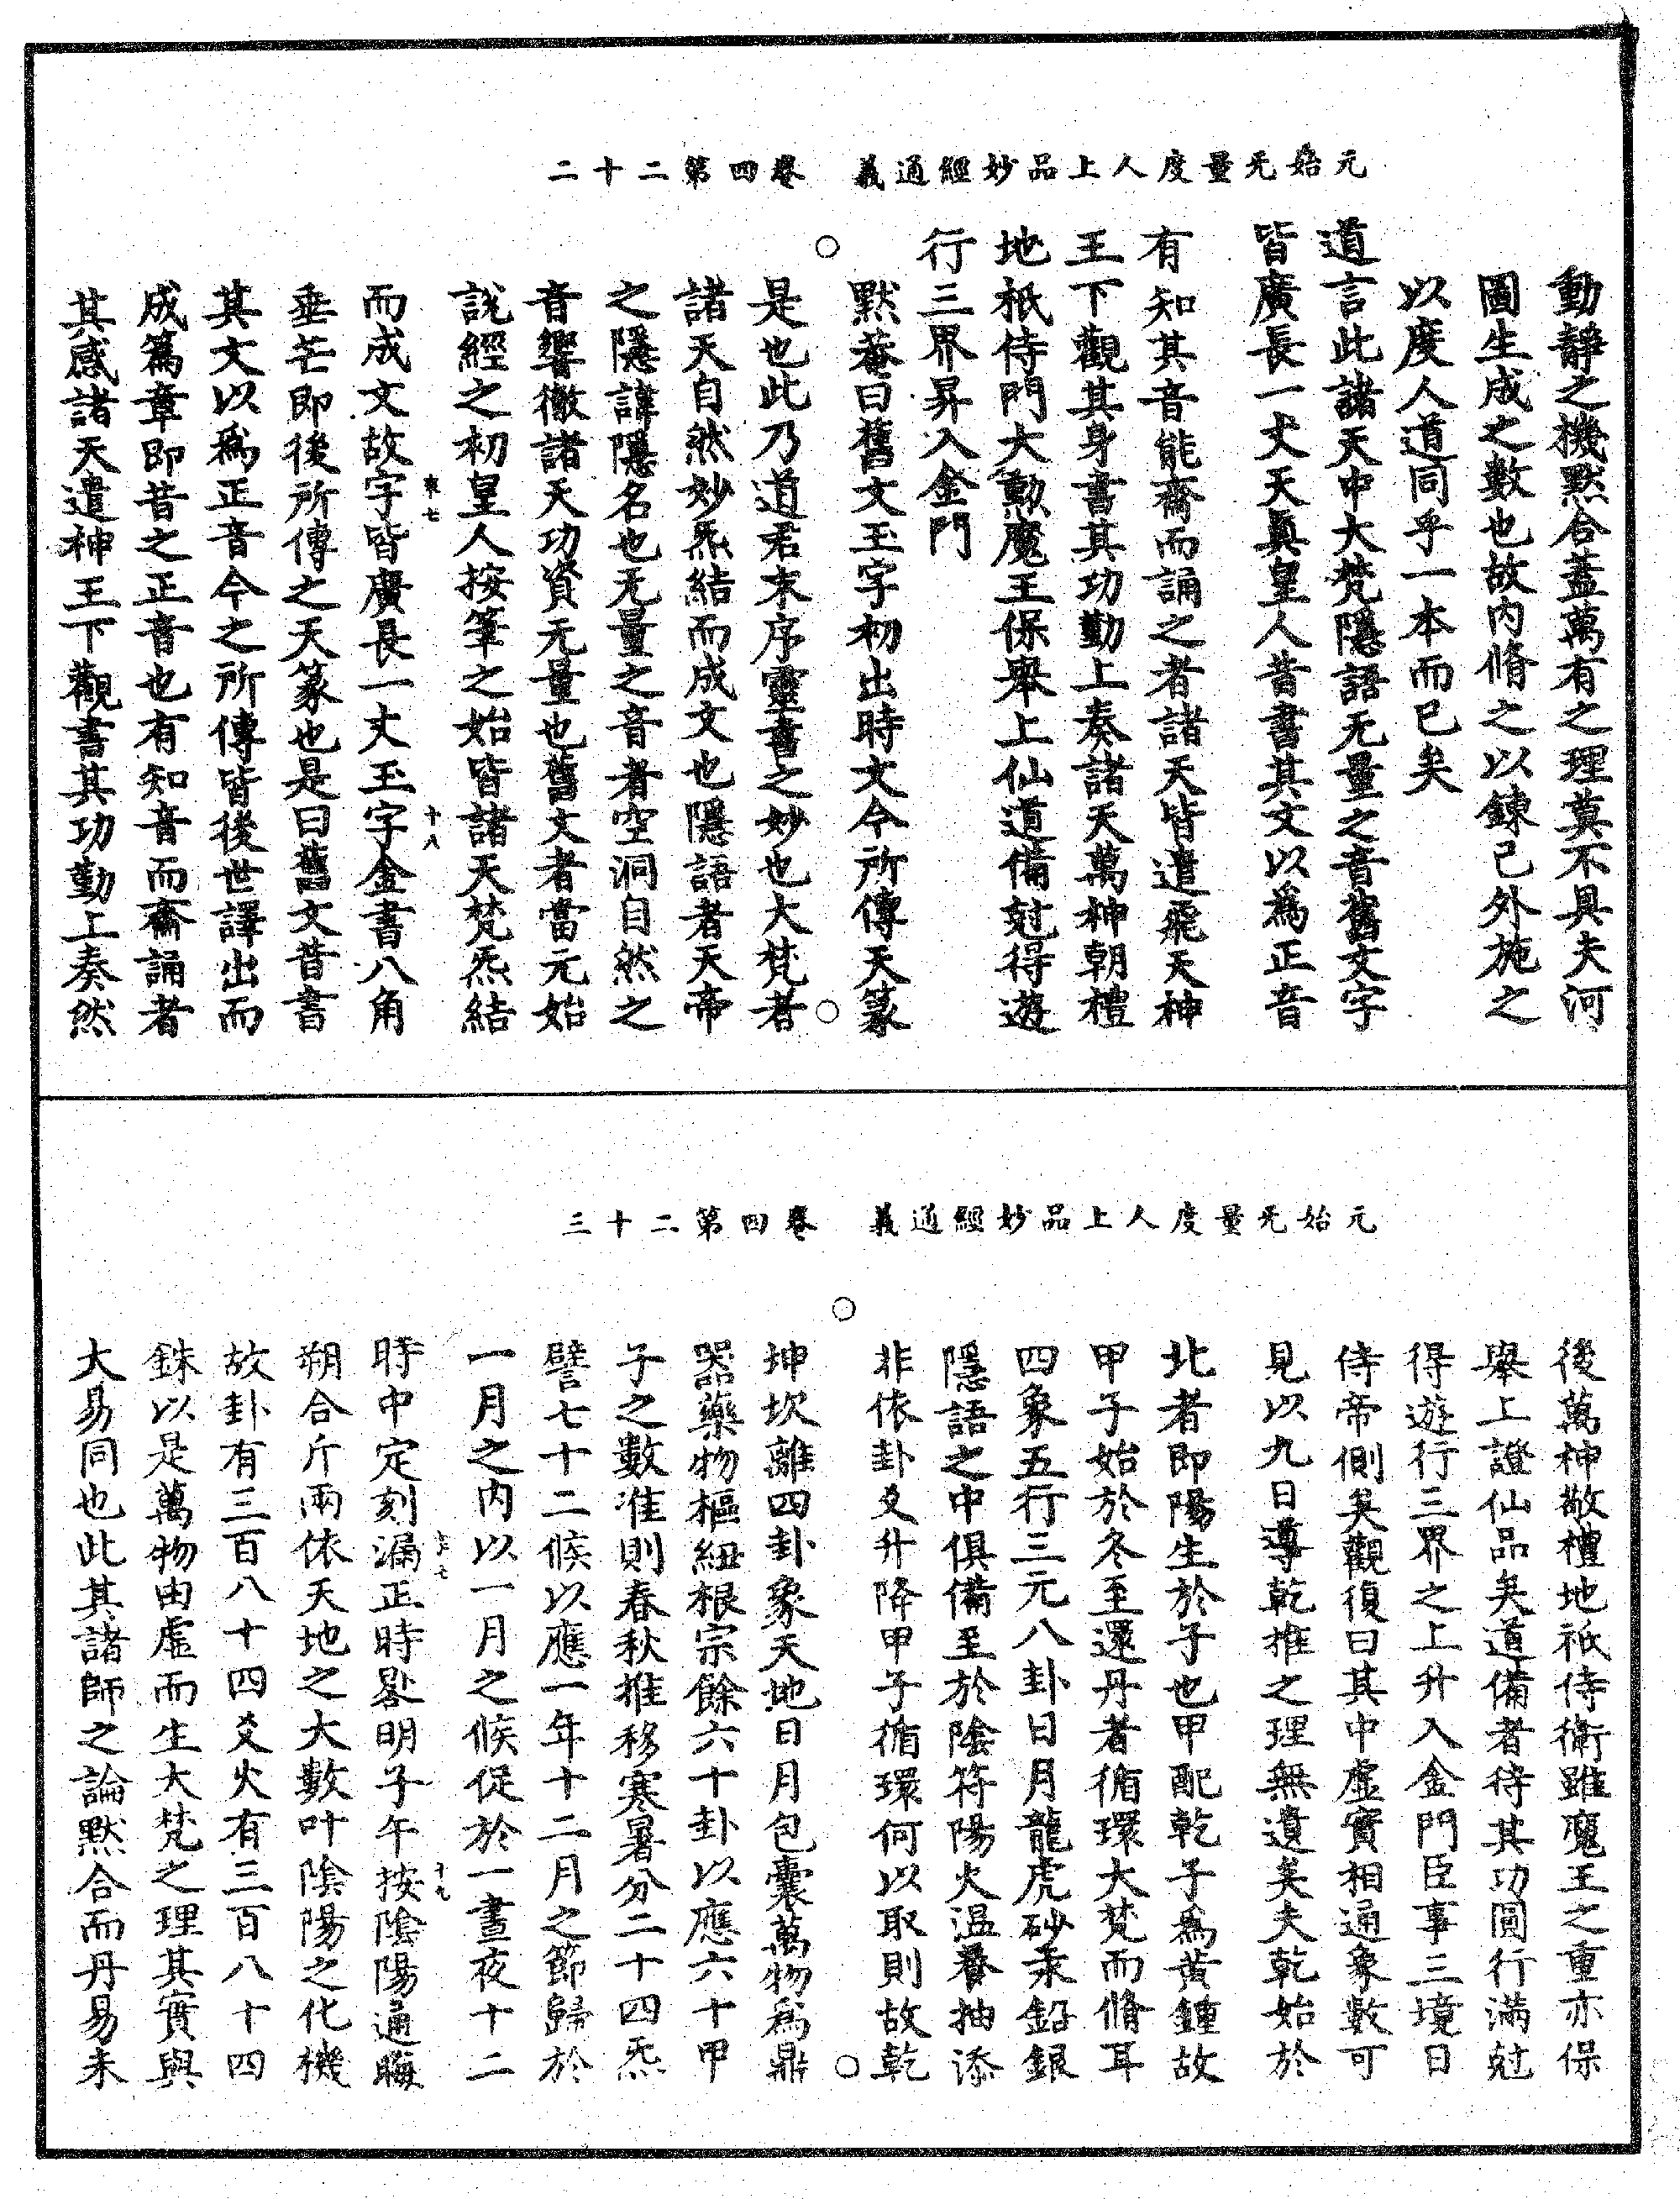 元始无量度人上品妙經通義　卷四第二十二
動靜之機默合蓋萬有之理莫不具夫河
圖生成之數也故內脩之以鍊己外施之
以度人道同乎一本而已矣
道言此諸天中大梵隱語无量之音舊文字
皆廣長一丈天真皇人昔書其文以為正音
有知其音能齋而誦之者諸天皆遣飛天神
王下觀其身書其功勤上奏諸天萬神朝禮
地祇侍門大勳魔王保舉上仙道備尅得遊
行三界昇入金門
默菴曰舊文玉字初出時文今所傳天篆
是也此乃道君末序靈書之妙也大梵者
諸天自然妙炁結而成文也隱語者天帝
之隱諱隱名也无量之音者空洞自然之
音響徹諸天功資无量也舊文者當元始
說經之初皇人按筆之始皆諸天梵炁結
而成文故字皆廣長一丈玉字金書八角
垂芒即後所傳之天篆也是曰舊文昔書
其文以為正音今之所傳皆後世譯出而
成篇章即昔之正音也有知音而齋誦者
其感諸天遣神王下觀書其功勤上奏然
十八
元始无量度人上品妙經通義　卷四第二十三
後萬神敬禮地祇侍衛雖魔王之重亦保
舉上證仙品矣道備者待其功圓行滿尅
得遊行三界之上升入金門臣事三境日
侍帝側矣觀復曰其中虛實相通象數可
見以九日導乾推之理無遺矣夫乾始於
北者即陽生於子也甲配乾子為黃鍾故
甲子始於冬至還丹者循環大梵而脩耳
四象五行三元八卦日月龍虎砂汞鉛銀
隱語之中俱備至於陰符陽火溫養抽添
非依卦爻升降甲子循環何以取則故乾
坤坎離四卦象天地日月包囊萬物為鼎
器藥物樞紐根宗餘六十卦以應六十甲
子之數准則春秋推移寒暑分二十四炁
譬七十二候以應一年十二月之節歸於
一月之內以一月之候促於一晝夜十二
時中定刻漏正時晷明子午按陰陽通晦
朔合斤兩依天地之大數叶陰陽之化機
故卦有三百八十四爻火有三百八十四
銖以是萬物由虛而生大梵之理其實與
大易同也此其諸師之論默合而丹易未
十九